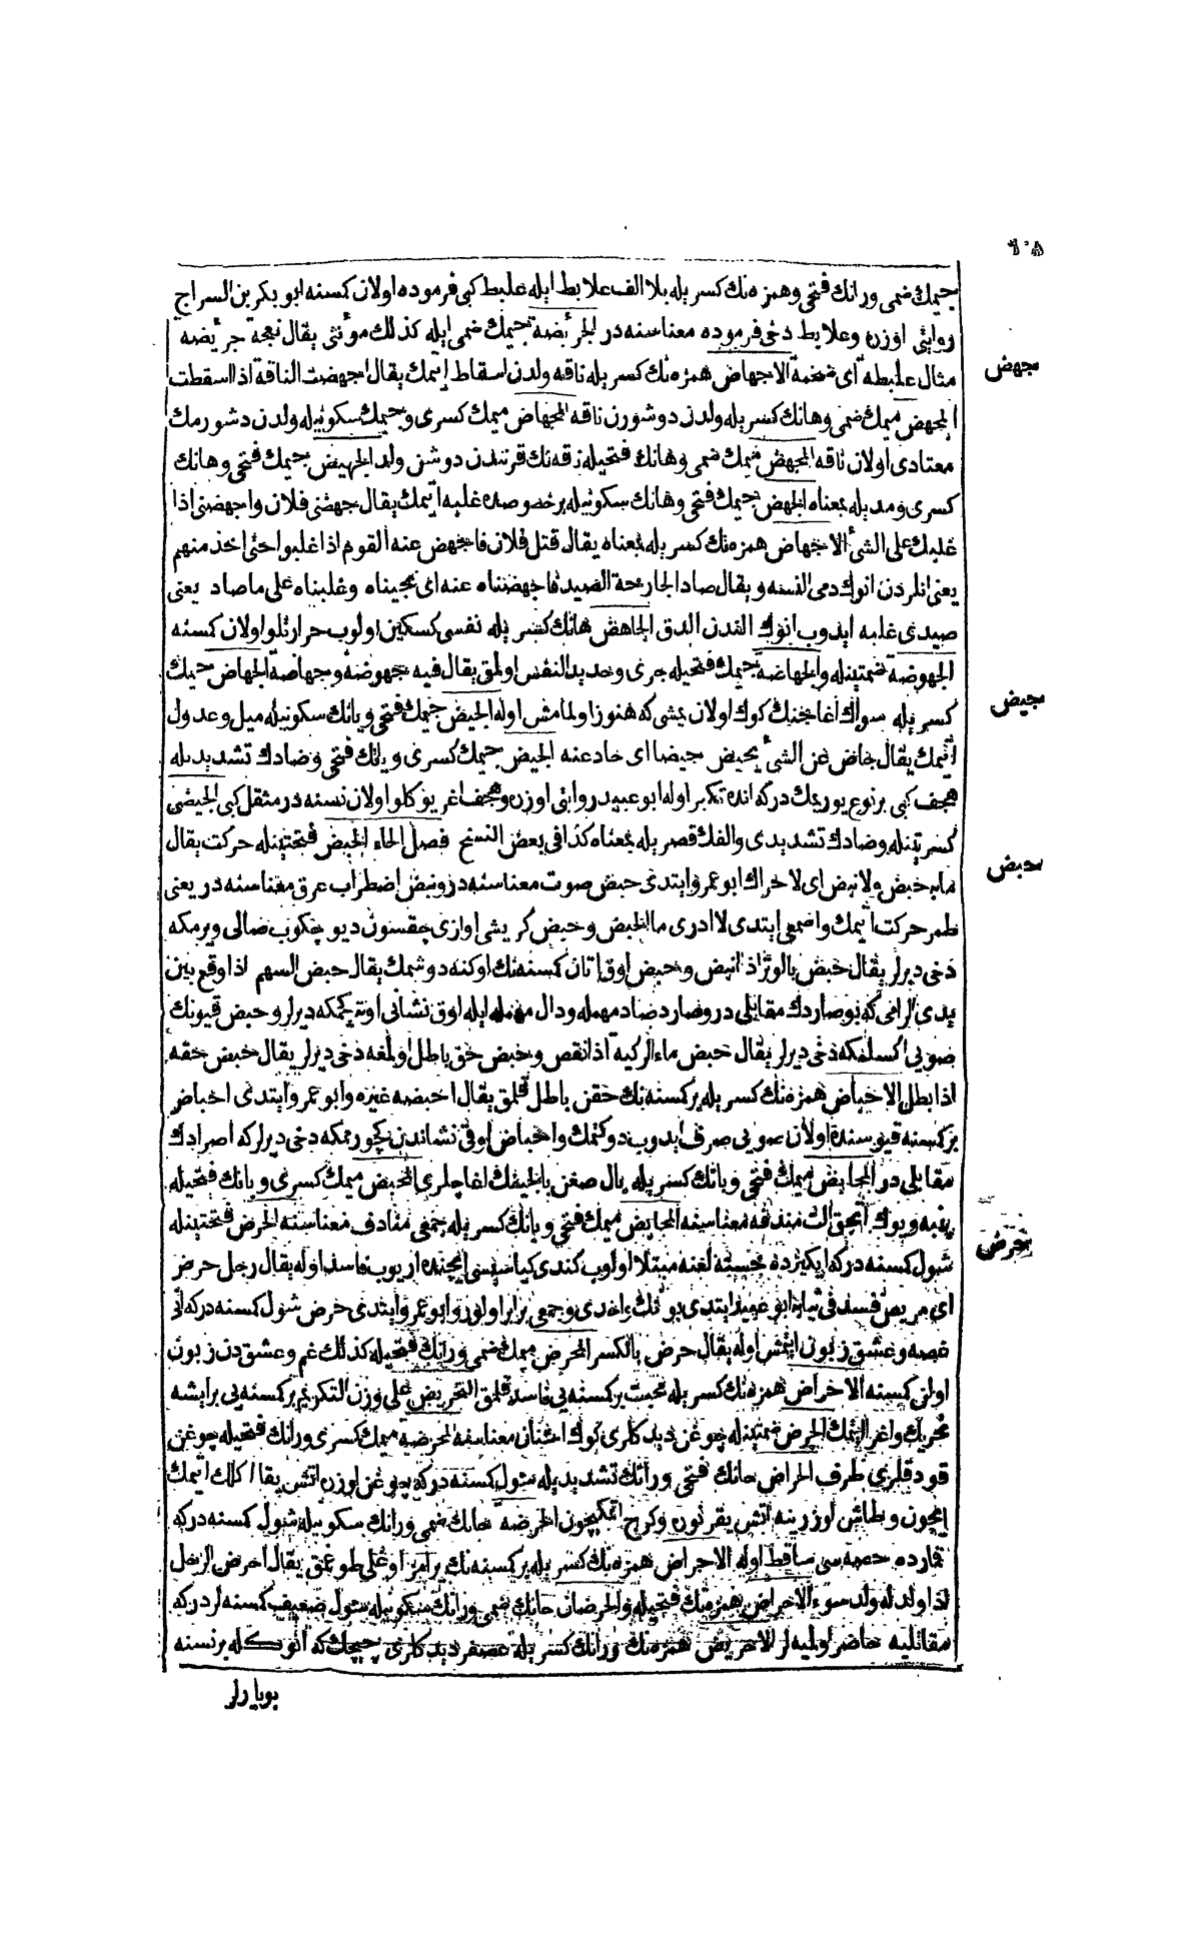 جيمك ضمى ورانك فتحى وهمزه نك كسريله بلا الف علابط ايله علبط كبى فرموده اولان كسنه ابو بكر بن السراج
روايتى اوزره وعلابط دخى فرموده معناسنه در الجرئضة جيمك ضمى ايله كذلك مؤنثى يقال نعجة جرئضه
جهض
مثال علبطه اى ضخمة الاجهاض همزه نك كسريله ناقه ولدن اسقاط ايتمك يقال اجهضت الناقة اذا اسقطت
المجهض ميمك ضمى وهانك كسريله ولدن دوشورن ناقه المجهاض ميمك كسرى وجيمك سكونيله ولدن دشورمك
معتادى اولان ناقه المجهض ميمك ضمى وهانك فتحيله ناقه نك قرنندن دوشن ولد الجهيض جيمك فتحى وهانك
كسرى ومديله بمعناه الجهض جيمك فتحى وهانك سكونيله بر خصوصده غلبه ايتمك يقال جهضنى فلان واجهضنى اذا
غلبك على الشئ الاجهاض همزه نك كسريله بمعناه يقال قتل فلان فاجهض عنه القوم اذا غلبوا حتى اخذ منهم
يعنى انلردن انوك دمى النسه ويقال صاد الجارحة الصيد فاجهضناه عنه اى نحيناه وغلبناه على ماصاد يعنى
صيدى غلبه ايدوب انوك الندن الدق الجاهض هانك كسريله نفسى كسكين اولوب حرارتلو اولان كسنه
الجهوضة ضمتينله والجهاضة جيمك فتحيله جرى وحديد النفس اولمق يقال فيه جهوضة وجهاضة الجهاض جيمك
جيض
كسريله سواك اغاجنك كوك اولان يمشى كه هنوز اولمامش اوله الجيض جيمك فتحى ويانك سكونيله ميل وعدول
ايتمك يقال جاض عن الشئ يجيض جيضا اى حاد عنه الجيض جيمك كسرى ويانك فتحى وضادك تشديديله
هجف كبى بر نوع يوريمك دركه انده تكبر اوله ابو عبيد روايتى اوزره وهجف اغر يوكلو اولان نسنه در مثقل كبى الجيضى
كسرتينله وضادك تشديدى والفك قصريله بمعناه كذا فى بعض النسخ فصل الحاء الحبض فتحتينله حركت يقال
حبض
مابه حبض ولا نبض اى لا حراك ابو عمرو ايتدى حبض صوت معناسنه در ونبض اضطراب عرق معناسنه در يعنى
طمر حركت ايتمك واصمعى ايتدى لا ادرى ما الحبض وحبض كريشى اوازى چقسون ديو چكوب صالى ويرمكه
دخى ديرلر يقال حبض بالوتر اذا انبض وحبض اوق اتان كسنه نك اوكنه دوشمك يقال حبض السهم اذا وقع بين
يدى الرامى كه بو صاردك مقابلى در وصارد ضاد مهمله ودال مهمله ايله اوق نشانى اوته كچمكه ديرلر وحبض قيونك
صويى اكسلمكه دخى ديرلر يقال حبض ماء الركية اذا نقص وحبض حق باطل اولمغه دخى ديرلر يقال حبض حقه
اذا بطل الاحباض همزه نك كسريله بر كسنه نك حقن باطل قلمق يقال احبضه غيره وابو عمرو ايتدى احباض
بر كسنه قيوسنده اولان صويى صرف ايدوب دوكتمك واحباض اوقى نشاندن كچورمكه دخى ديرلر كه اصرادك
مقابلى در المحابض ميمك فتحى وبانك كسريله بال صغن يا لحيفك اغاجلرى المحبض ميمك كسرى وبانك فتحيله
پنبه ويوك اتجق الت مندفه معناسنه المحابض ميمك فتحى وبانك كسريله جمعى منادف معناسنه الحرض فتحتينله
حرض
شول كسنه دركه ايكيزده خسته لغنه مبتلا اولوب كندى كياسيسى ايچنده اريوب فاسد اوله يقال رجل حرض
اى مريض فسد فى ثيابه ابو عبيد ايتدى بونك واحدى وجمعى برابر اولور وابو عمرو ايتدى حرض شول كسنه دركه انى
غصه وعشق زبون ايتمش اوله يقال حرض بالكسر المحرض ميمك ضمى ورانك فتحيله كذلك غم وعشقدن زبون
اولن كسنه الاحراض همزه نك كسريله محبت بر كسنه يى فاسد قلمق التحريض على وزن التكريم بر كسنه يى بر ايشه
تحريك واغرا ايتمك الحرض ضمتينله چوغن ديدكلرى كوك اشنان معناسنه المحرضة ميمك كسرى ورانك فتحيله چوغن
قودقلرى ظرف الحراض حانك فتحى ورانك تشديديله شول كسنه دركه چوغن اوزره اتش يقا اكلك ايتمك
ايچون وطاش اوزرينه اتش يقر نوره وكرج ايتمكيچون الحرضه حانك ضمى ورانك سكونيله شول كسنه دركه
قمارده حصه سى ساقط اوله الاحراض همزه نك كسريله بر كسنه نك يرامز اوغلى طوغمق يقال احرض الرجل
اذا ولد له ولد سوء الاحراض همزه نك فتحيله والحرضان حانك ضمى ورانك سكونيله شول ضعيف كسنه لردركه
مقاتليه حاضر اولميه لر الاحريض همزه نك ورانك كسريله عصفر ديدكلرى چيچك كه انوك له بر نسنه
بويارلر